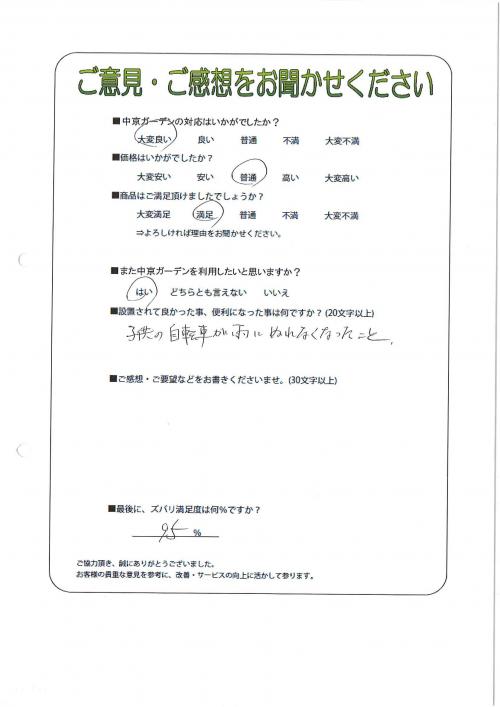 ご意見・ご感想をお聞かせください
■中京ガーデンの対応はいかがでしたか？
大変良い 良い 普通 不満 大変不満
■価格はいかがでしたか？
大変安い 安い 普通 高い 大変高い
■商品はご満足頂けましたでしょうか？
大変満足 満足 普通 不満 大変不満
⇒よろしければ理由をお聞かせください。
■また中京ガーデンを利用したいと思いますか？
はい どちらとも言えない いいえ
■設置されて良かった事、便利になった事は何ですか？(20文字以上)
子供の自転車が雨にぬれなくなったこと。
■ご感想・ご要望などをお書きくださいませ。(30文字以上)
■最後に、ズバリ満足度は何%ですか？
95 %
ご協力頂き、誠にありがとうございました。
お客様の貴重な意見を参考に、改善・サービスの向上に活かして参ります。